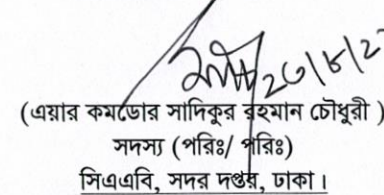 ২৩/৮/২
(এয়ার কমডোর সাদিকুর রহমান চৌধুরী )
সদস্য (পরিঃ/ পরিঃ)
সিএএবি, সদর দপ্তর, ঢাকা।